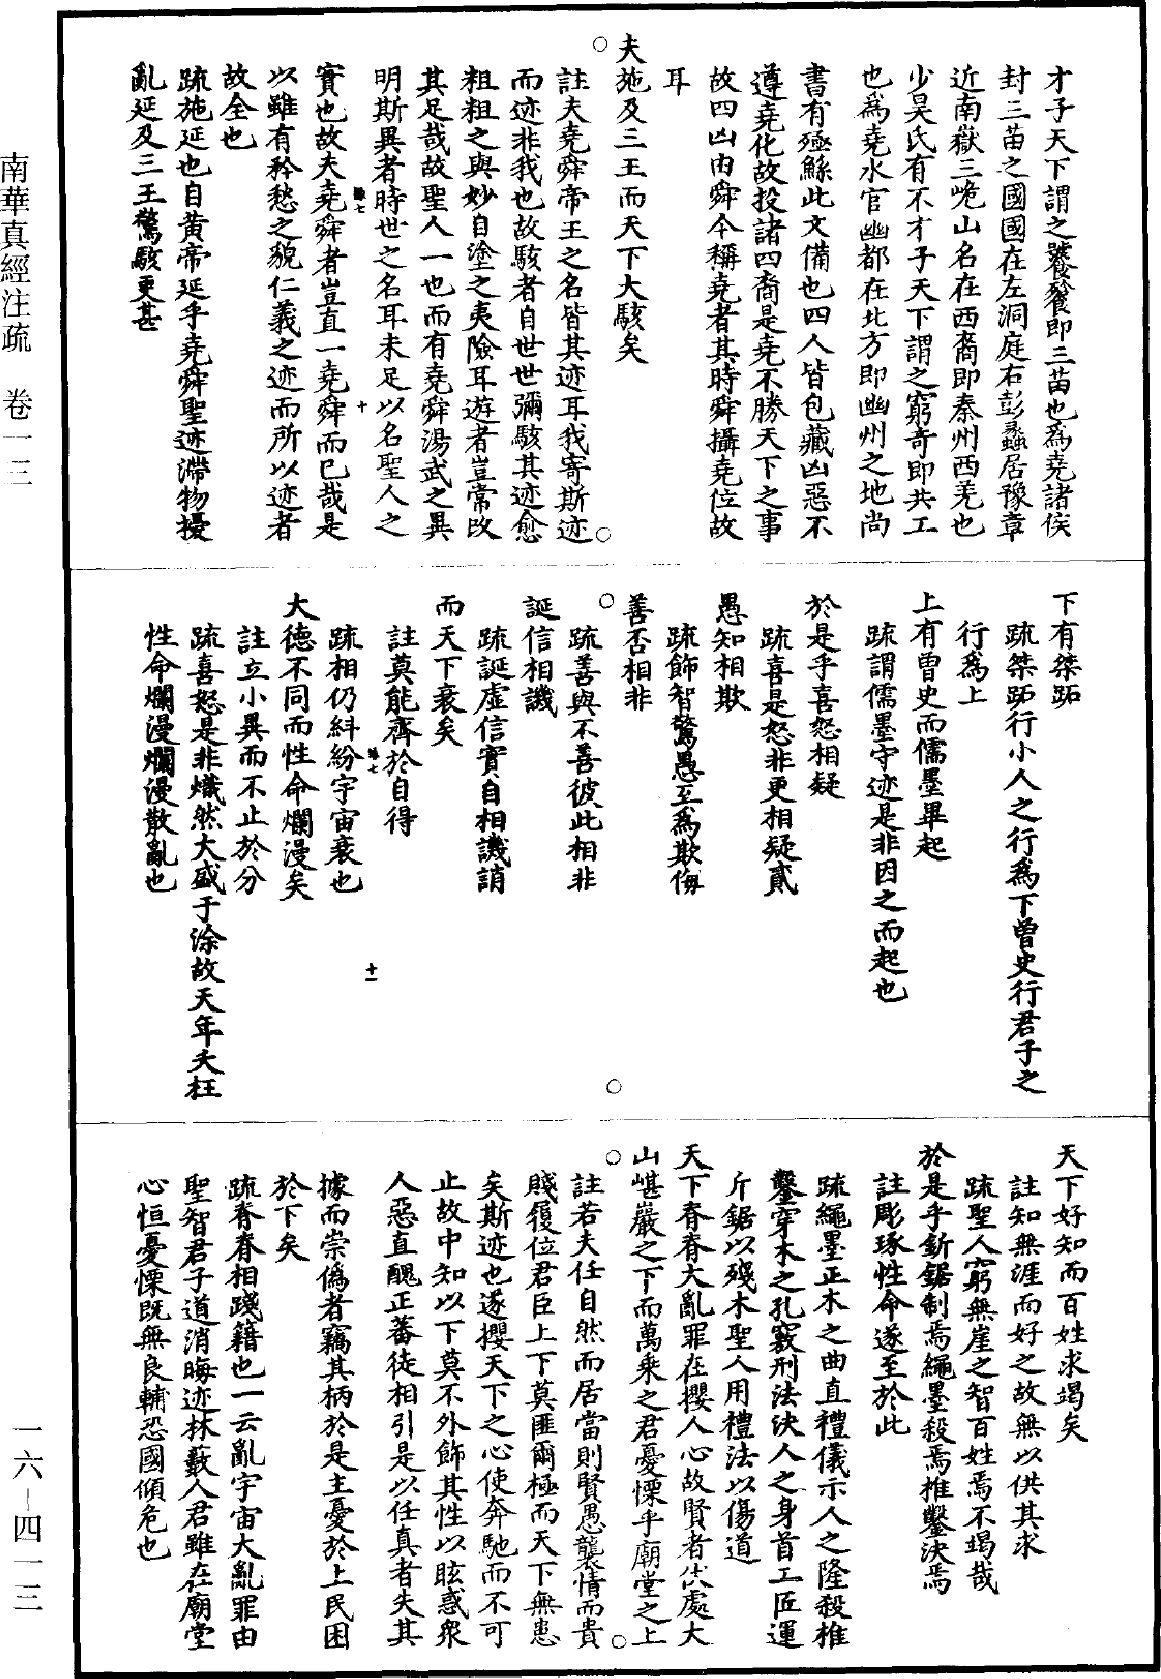 才子天下謂之饕餮即三苗也爲堯諸侯
封三苗之國國在左洞庭右彭蠡居豫章
近南嶽三峗山名在西裔即秦州西羌也
少昊氏有不才子天下謂之窮奇即共工
也爲堯水官幽都在北方即幽州之地尚
書有殛鯀此文備也四人皆包藏凶惡不
遵堯化故投諸四裔是堯不勝天下之事
故四凶由舜今稱堯者其時舜攝堯位故
耳
夫施及三王而天下大駭矣
註夫堯舜帝王之名皆其迹耳我寄斯迹
而迹非我也故駭者自世世彌駭其迹愈
粗粗之與妙自塗之夷險耳遊者豈常改
其足哉故聖人一也而有堯舜湯武之異
明斯異者時世之名耳未足以名聖人之
實也故夫堯舜者豈直一堯舜而已哉是
以雖有矜愁之貌仁義之迹而所以迹者
故全也
疏施延也自黄帝延乎堯舜聖迹滯物擾
亂延及三王驚駭更甚
下有桀跖
疏桀跖行小人之行爲下曾史行君子之
行爲上
上有曾史而儒墨畢起
疏謂儒墨守迹是非因之而起也
於是乎喜怒相疑
疏喜是怒非更相疑貳
愚知相欺
疏飾智驚愚互爲欺侮
善否相非
疏善與不善彼此相非
誕信相譏
疏誕虛信實自相譏誚
而天下衰矣
註莫能齊於自得
疏相仍糾紛宇宙衰也
大德不同而性命爛漫矣
註立小異而不止於分
疏喜怒是非熾然大盛于涂故天年夭枉
性命爛漫爛漫散亂也
天下好知而百姓求竭矣
註知無涯而好之故無以供其求
疏聖人窮無崖之智百姓焉不竭哉
於是乎釿鋸制焉繩墨殺焉椎鑿決焉
註彫琢性命遂至於此
疏繩墨正木之曲直禮儀示人之隆殺椎
鑿穿木之孔竅刑法決人之身首工匠運
斤鋸以殘木聖人用禮法以傷道
天下脊脊大亂罪在攖人心故賢者伏處大
山嵁巖之下而萬乘之君憂慄乎廟堂之上
註若夫任自然而居當則賢愚襲情而貴
賤履位君臣上下莫匪爾極而天下無患
矣斯迹也遂攖天下之心使奔馳而不可
止故中知以下莫不外飾其性以眩惑衆
人惡直醜正蕃徒相引是以任真者失其
據而崇僞者竊其柄於是主憂於上民困
於下矣
疏脊脊相踐籍也一云亂宇宙大亂罪由
聖智君子道消晦迹林藪人君雖在廟堂
心恒憂慄既無良輔恐國傾危也
南華真經注疏　卷一三
一六－四一三
十
十一